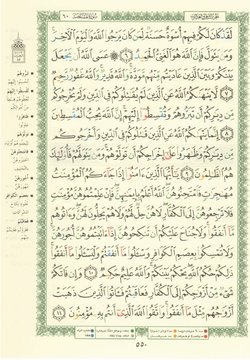 لَقَدْ كَانَ لَكُمْ فِيهِمْ أُسْوَةٌ حَسَنَةٌ لِّمَن كَانَ يَرْجُوا۟ ٱللَّهَ وَٱلْيَوْمَ ٱلْـَٔاخِرَ ۚ
وَمَن يَتَوَلَّ فَإِنَّ ٱللَّهَ هُوَ ٱلْغَنِىُّ ٱلْحَمِيدُ ٦ ۞ عَسَى ٱللَّهُ أَن يَجْعَلَ
بَيْنَكُمْ وَبَيْنَ ٱلَّذِينَ عَادَيْتُم مِّنْهُم مَّوَدَّةً ۚ وَٱللَّهُ قَدِيرٌ ۚ وَٱللَّهُ غَفُورٌ رَّحِيمٌ
٧ لَّا يَنْهَىٰكُمُ ٱللَّهُ عَنِ ٱلَّذِينَ لَمْ يُقَـٰتِلُوكُمْ فِى ٱلدِّينِ وَلَمْ يُخْرِجُوكُم
مِّن دِيَـٰرِكُمْ أَن تَبَرُّوهُمْ وَتُقْسِطُوٓا۟ إِلَيْهِمْ ۚ إِنَّ ٱللَّهَ يُحِبُّ ٱلْمُقْسِطِينَ
٨ إِنَّمَا يَنْهَىٰكُمُ ٱللَّهُ عَنِ ٱلَّذِينَ قَـٰتَلُوكُمْ فِى ٱلدِّينِ وَأَخْرَجُوكُم
مِّن دِيَـٰرِكُمْ وَظَـٰهَرُوا۟ عَلَىٰٓ إِخْرَاجِكُمْ أَن تَوَلَّوْهُمْ ۚ وَمَن يَتَوَلَّهُمْ فَأُو۟لَـٰٓئِكَ
هُمُ ٱلظَّـٰلِمُونَ ٩ يَـٰٓأَيُّهَا ٱلَّذِينَ ءَامَنُوٓا۟ إِذَا جَآءَكُمُ ٱلْمُؤْمِنَـٰتُ
مُهَـٰجِرَٰتٍ فَٱمْتَحِنُوهُنَّ ۖ ٱللَّهُ أَعْلَمُ بِإِيمَـٰنِهِنَّ ۖ فَإِنْ عَلِمْتُمُوهُنَّ مُؤْمِنَـٰتٍ
فَلَا تَرْجِعُوهُنَّ إِلَى ٱلْكُفَّارِ ۖ لَا هُنَّ حِلٌّ لَّهُمْ وَلَا هُمْ يَحِلُّونَ لَهُنَّ ۖ وَءَاتُوهُم
مَّآ أَنفَقُوا۟ ۚ وَلَا جُنَاحَ عَلَيْكُمْ أَن تَنكِحُوهُنَّ إِذَآ ءَاتَيْتُمُوهُنَّ أُجُورَهُنَّ ۚ
وَلَا تُمْسِكُوا۟ بِعِصَمِ ٱلْكَوَافِرِ وَسْـَٔلُوا۟ مَآ أَنفَقْتُمْ وَلْيَسْـَٔلُوا۟ مَآ أَنفَقُوا۟ ۚ
ذَٰلِكُمْ حُكْمُ ٱللَّهِ ۖ يَحْكُمُ بَيْنَكُمْ ۚ وَٱللَّهُ عَلِيمٌ حَكِيمٌ ١٠ وَإِن فَاتَكُمْ
شَىْءٌ مِّنْ أَزْوَٰجِكُمْ إِلَى ٱلْكُفَّارِ فَعَاقَبْتُمْ فَـَٔاتُوا۟ ٱلَّذِينَ ذَهَبَتْ
أَزْوَٰجُهُم مِّثْلَ مَآ أَنفَقُوا۟ ۚ وَٱتَّقُوا۟ ٱللَّهَ ٱلَّذِىٓ أَنتُم بِهِۦ مُؤْمِنُونَ ١١
٥٥٠